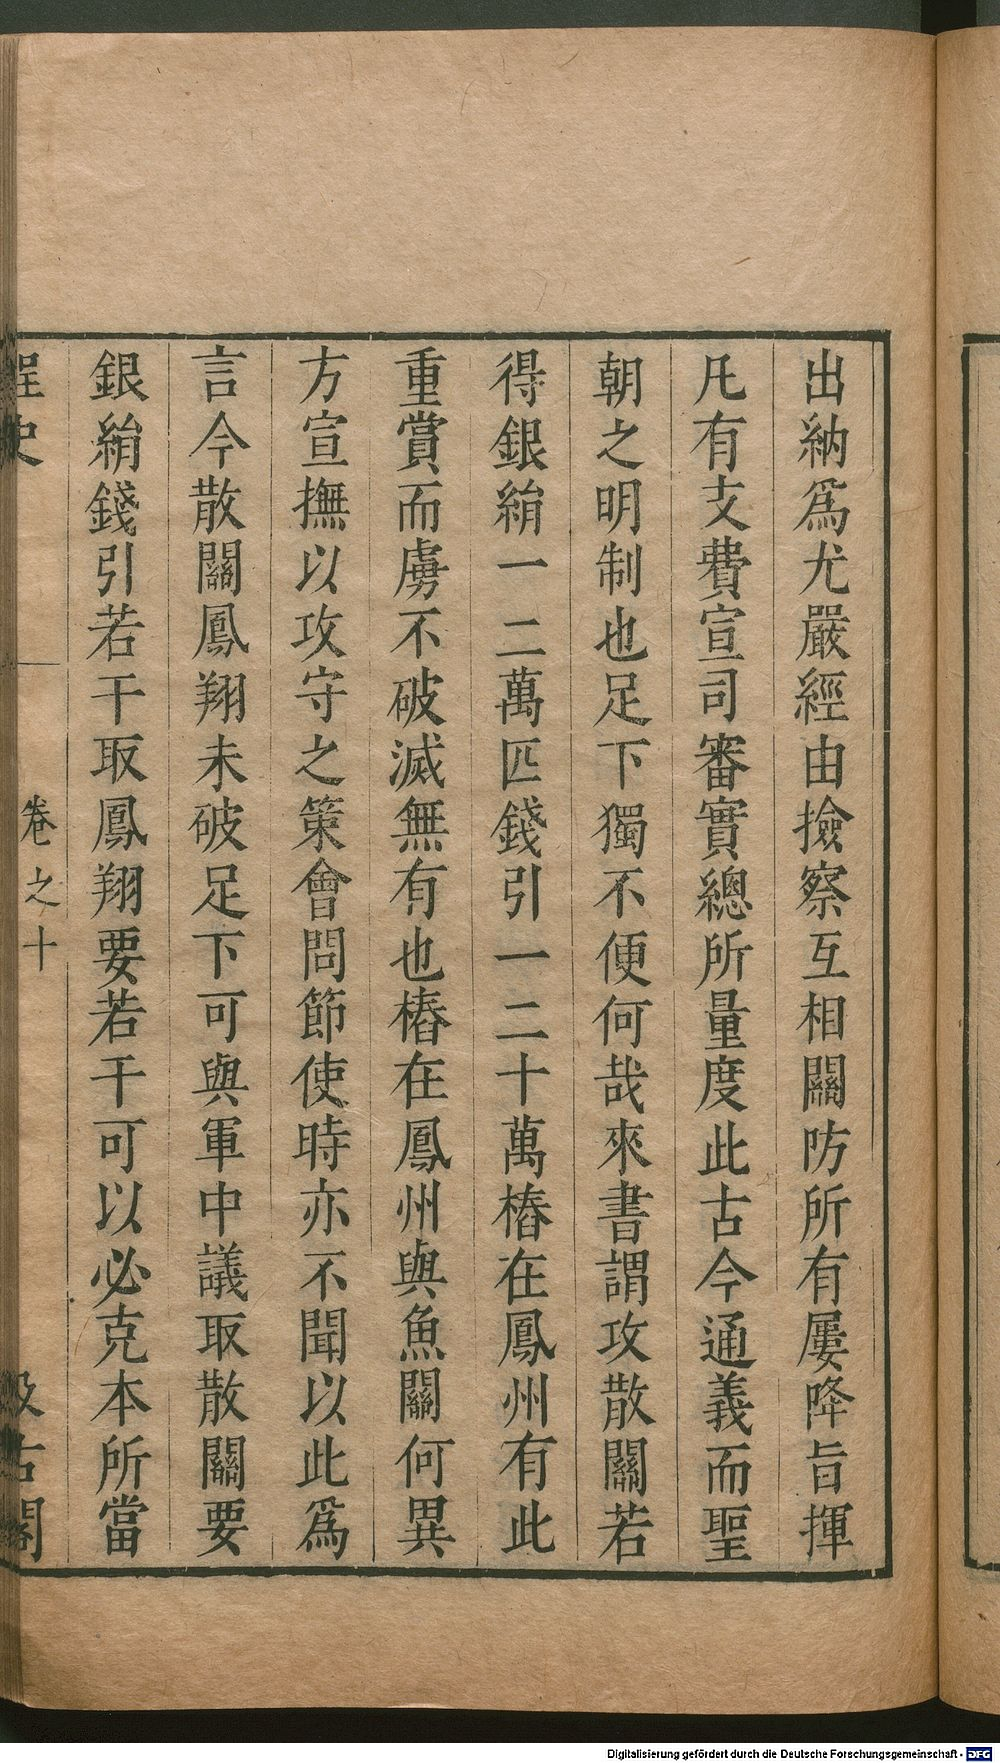 出納爲尤嚴經由撿察互相關防所有屢降旨揮
凡有支費宣司審實總所量度此古今通義而聖
朝之明制也足下獨不便何哉來書謂攻散關若
得銀絹一二萬匹錢引一二十萬樁在鳳州有此
重賞而虜不破滅無有也樁在鳳州與魚關何異
方宣撫以攻守之策會問節使時亦不聞以此爲
言今散關鳳翔未破足下可與軍中議取散關要
銀絹錢引若干取鳳翔要若干可以必克本所當
桯史 卷之十 汲古閣
Digitalisierung gefördert durch die Deutsche Forschungsgemeinschaft - DFG